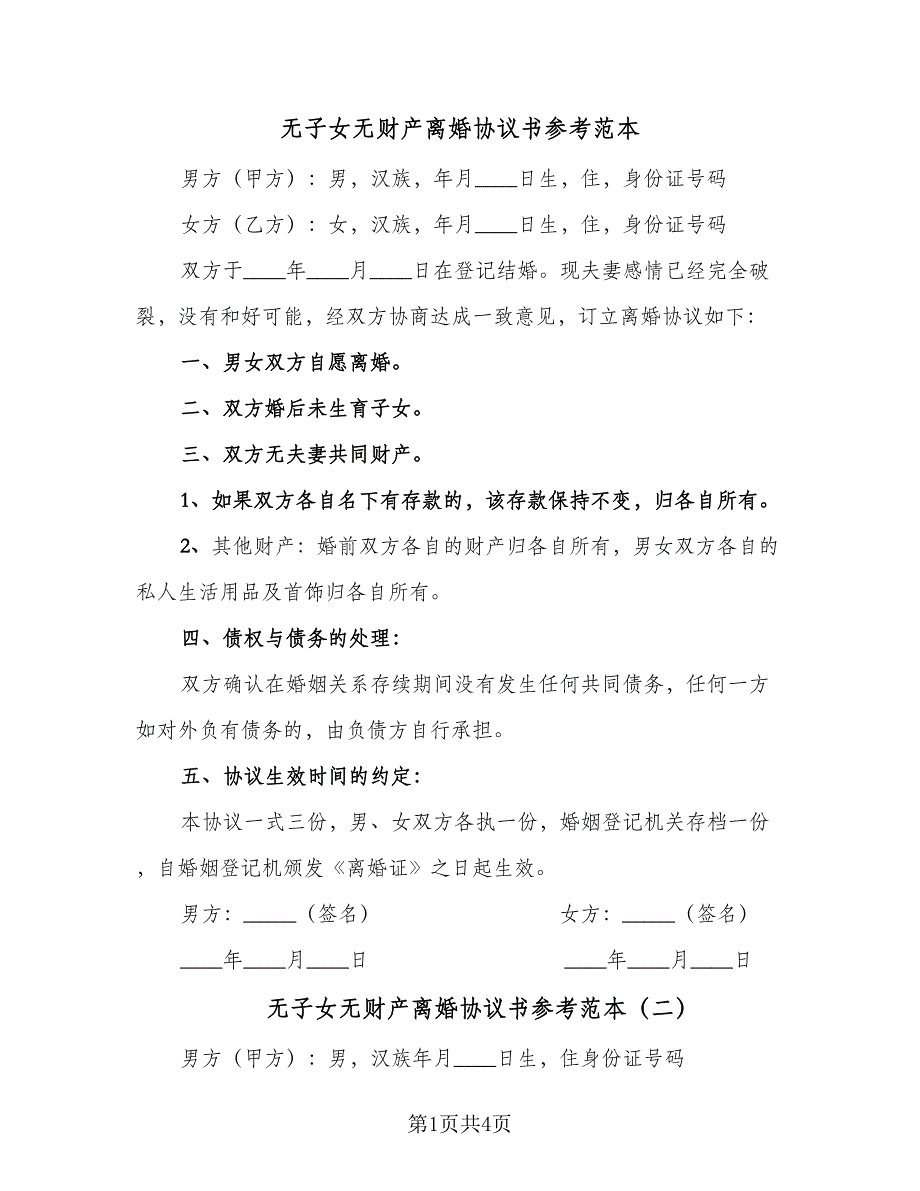 无子女无财产离婚协议书参考范本
男方（甲方）：男，汉族，年月____日生，住，身份证号码
女方（乙方）：女，汉族，年月____日生，住，身份证号码
双方于____年____月____日在登记结婚。现夫妻感情已经完全破
裂，没有和好可能，经双方协商达成一致意见，订立离婚协议如下：
一、男女双方自愿离婚。
二、双方婚后未生育子女。
三、双方无夫妻共同财产。
1、如果双方各自名下有存款的，该存款保持不变，归各自所有。
2、其他财产：婚前双方各自的财产归各自所有，男女双方各自的
私人生活用品及首饰归各自所有。
四、债权与债务的处理：
双方确认在婚姻关系存续期间没有发生任何共同债务，任何一方
如对外负有债务的，由负债方自行承担。
五、协议生效时间的约定：
本协议一式三份，男、女双方各执一份，婚姻登记机关存档一份
，自婚姻登记机颁发《离婚证》之日起生效。
男方：_____（签名） 女方：_____（签名）
____年____月____日 ____年____月____日
无子女无财产离婚协议书参考范本（二）
男方（甲方）：男，汉族年月____日生，住身份证号码
第1页共4页